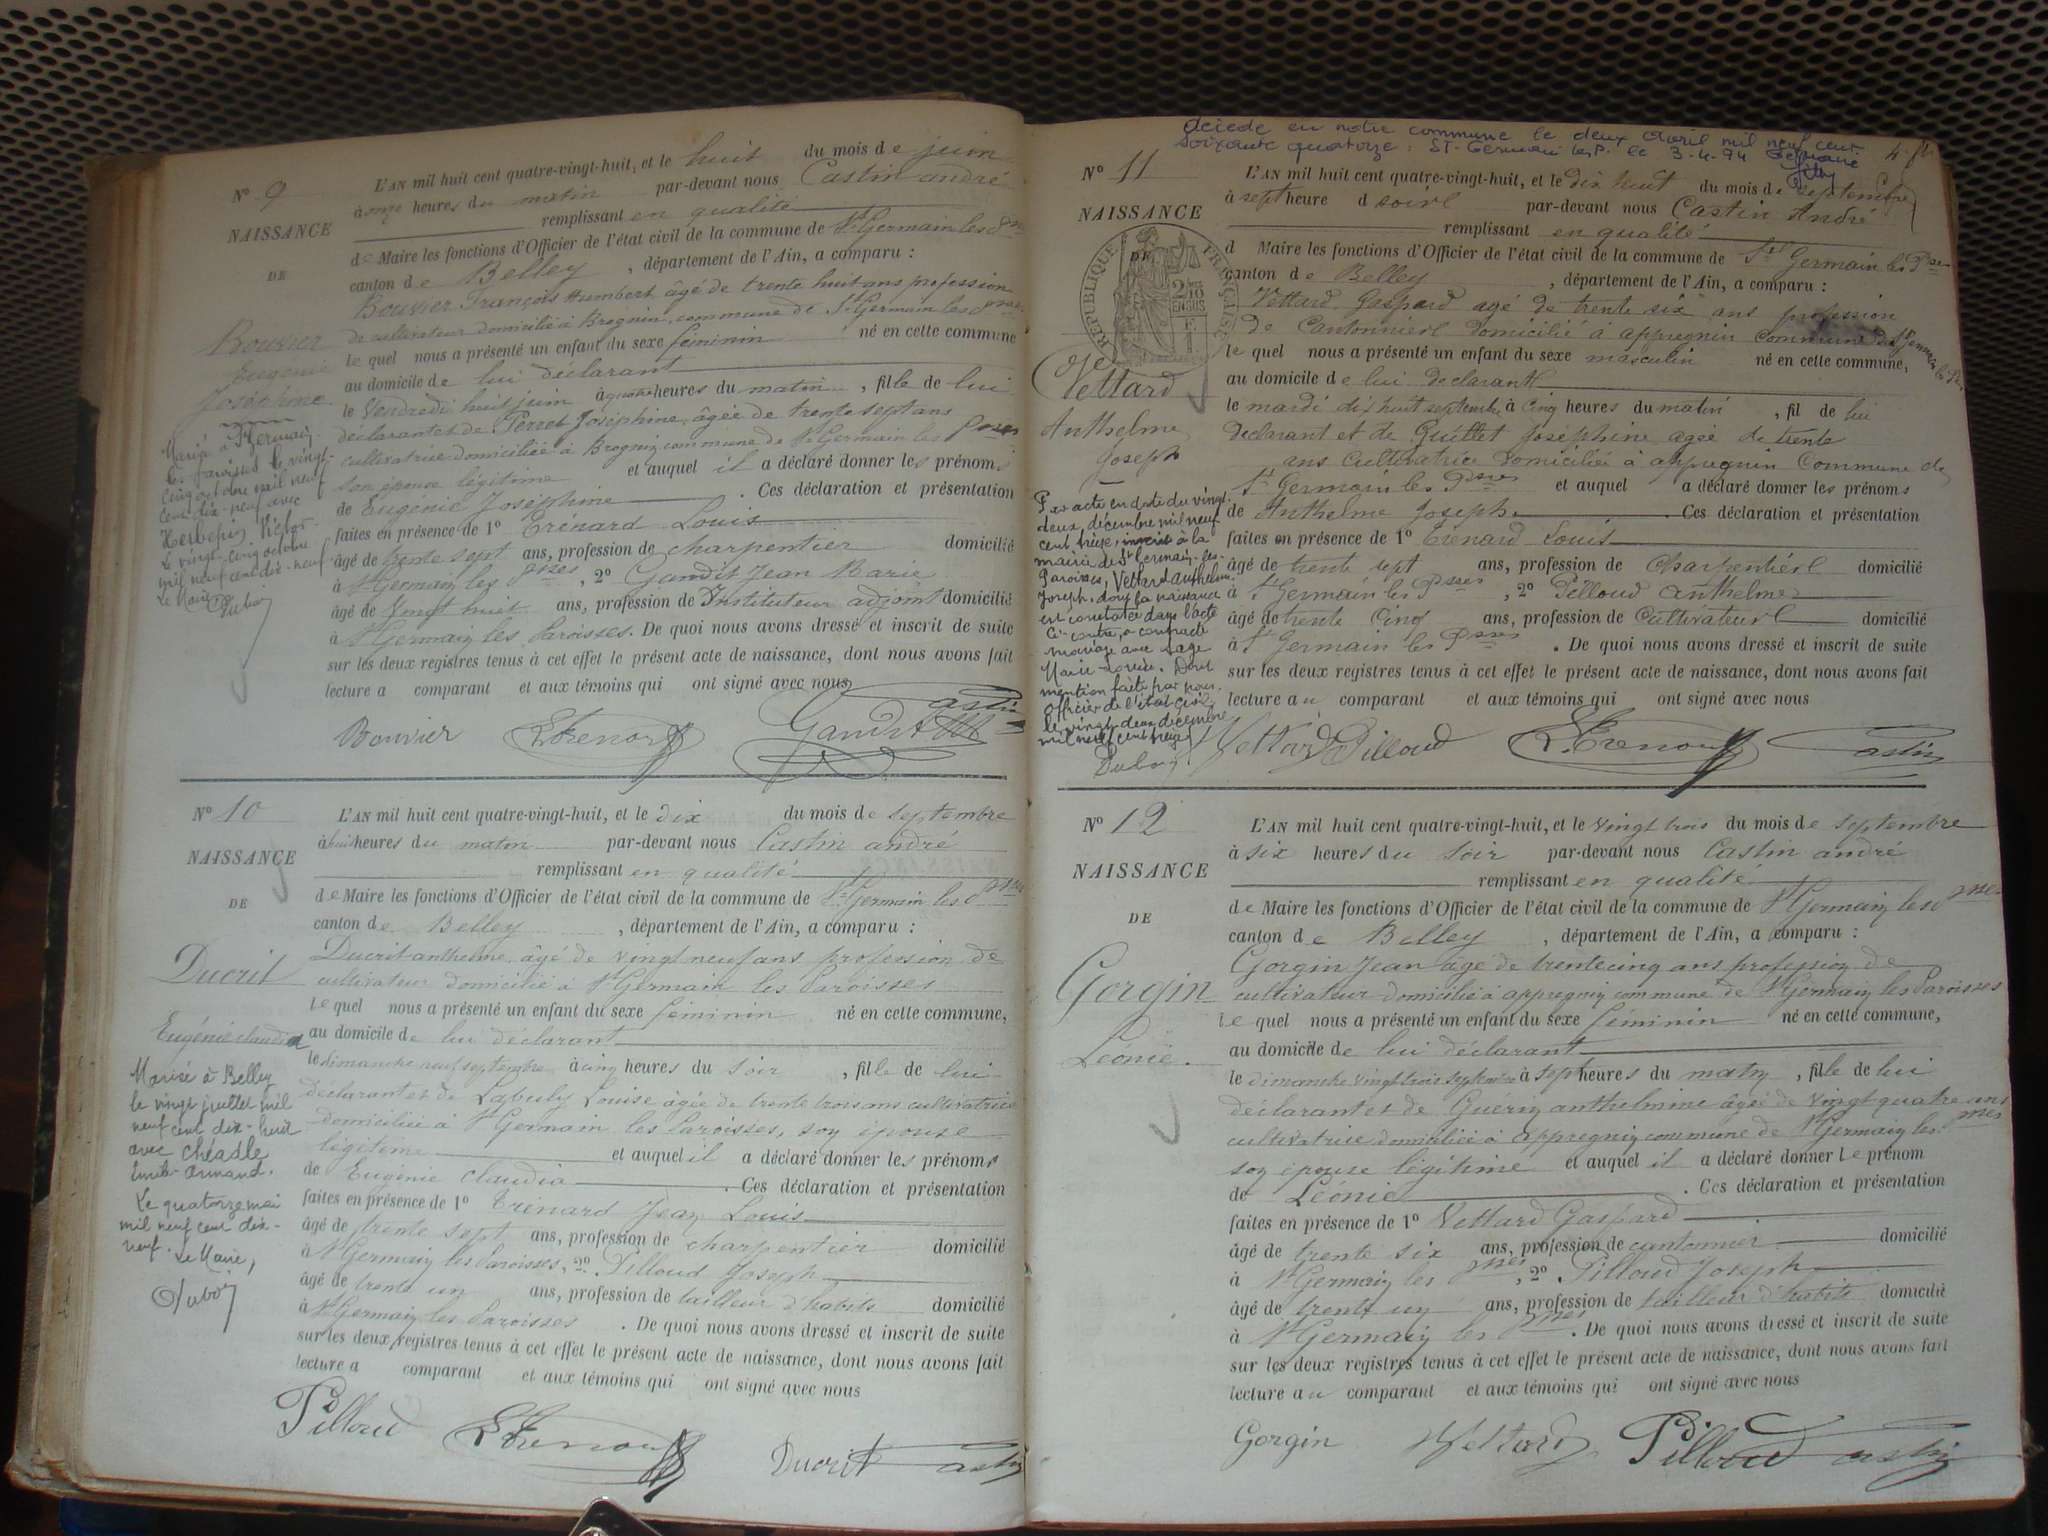 No 9
NAISSANCE
DE
Bouvier
Eugénie
Joséphine
Marié à St Germain
les Paroisses le vingt-
cinq octobre mil neuf
cent dix-neuf avec
le vingt-cinq octobre
mil neuf cent dix-neuf
Le Maire
L'AN mil huit cent quatre-vingt-huit, et le huit du mois de juin
à onze heures du matin par-devant nous Castin andré
remplissant en qualité
de Maire les fonctions d'Officier de l'état civil de la commune de St Germain les Pses
canton de Belley, département de l'Ain, a comparu :
Bouvier François Humbert âgé de trente huit ans profession
de cultivateur domicilié à Brognin commune de St Germain les Pses
le quel nous a présenté un enfant du sexe féminin né en cette commune
au domicile de lui déclarant
le Vendredi huit juin à quatre heures du matin, fille de lui
déclarant et de Perret Joséphine, âgée de trente sept ans
cultivatrice domiciliée à Brognin commune de St Germain les Pses
son épouse légitime et auquel il a déclaré donner les prénoms
de Eugénie Joséphine. Ces déclaration et présentation
faites en présence de 1º Trénard Louis
âgé de trente sept ans, profession de charpentier domicilié
à St Germain les Pses, 2º Gandit Jean Marie
âgé de vingt huit ans, profession de Instituteur adjoint domicilié
à St Germain les Paroisses. De quoi nous avons dressé et inscrit de suite
sur les deux registres tenus à cet effet le présent acte de naissance, dont nous avons fait
lecture a comparant et aux témoins qui ont signé avec nous
Bouvier LTrenard Gandit JM Castin
No 10
NAISSANCE
DE
Ducrit
Eugénie claudia
Mariée à Belley
le vingt juillet mil
neuf cent dix-huit
avec Chéadle
Emile-Armand.
Le quatorze mai
mil neuf cent dix-
neuf. Le Maire,
L'AN mil huit cent quatre-vingt-huit, et le dix du mois de septembre
à huit heures du matin par-devant nous Castin andré
remplissant en qualité
de Maire les fonctions d'Officier de l'état civil de la commune de St Germain les Pses
canton de Belley, département de l'Ain, a comparu :
Ducrit anthelme, âgé de vingt neuf ans profession de
cultivateur domicilié à St Germain les Paroisses
le quel nous a présenté un enfant du sexe féminin né en cette commune,
au domicile de lui déclarant
le dimanche neuf septembre à cinq heures du soir, fille de lui
déclarant et de Labuly Louise âgée de trente trois ans cultivatrice
domiciliée à St Germain les Paroisses, son épouse
légitime et auquel il a déclaré donner les prénoms
de Eugénie claudia. Ces déclaration et présentation
faites en présence de 1º Trénard Jean Louis
âgé de trente sept ans, profession de charpentier domicilié
à St Germain les Paroisses, 2º Pilloud Joseph
âgé de trente un ans, profession de tailleur d'habits domicilié
à St Germain les Paroisses. De quoi nous avons dressé et inscrit de suite
sur les deux registres tenus à cet effet le présent acte de naissance, dont nous avons fait
lecture a comparant et aux témoins qui ont signé avec nous
Pilloud LTrenard Ducrit Castin
décédé en notre commune le deux avril mil neuf cent
soixante quatorze. St-Germain les P. le 3-4-74
No 11
NAISSANCE
DE
RÉPUBLIQUE FRANÇAISE
Vettard
Anthelme
Joseph
Par acte en date du vingt
deux, décembre mil neuf
cent treize, inscrit à la
mairie de St Germain-les-
Paroisses, Vettard Anthelme
Joseph, dont la naissance
est constatée dans l'acte
ci-contre, a contracté
mariage avec
Marie Louise. Dont
mention faite par nous,
officier de l'état civil,
le vingt-deux décembre
mil neuf cent treize
L'AN mil huit cent quatre-vingt-huit, et le dix huit du mois de septembre
à sept heure d soire par-devant nous Castin André
remplissant en qualité
d Maire les fonctions d'Officier de l'état civil de la commune de St Germain les Pses
canton de Belley, département de l'Ain, a comparu :
Vettard Gaspard agé de trente six ans profession
de Cantonnier domicilié à appregnin commune de St Germain les Pses
le quel nous a présenté un enfant du sexe masculin né en cette commune,
au domicile de lui declarant
le mardi dix huit septembre à cinq heures du matin, fil de lui
declarant et de Guillet Joséphine agée de trente
ans cultivatrice domiciliée à appregnin Commune de
St Germain les Pses et auquel a déclaré donner les prénoms
de Anthelme Joseph. Ces déclaration et présentation
faites en présence de 1º Trénard Louis
âgé de trente sept ans, profession de Charpentier domicilié
à St Germain les Pses, 2º Pilloud Anthelme
âgé de trente cinq ans, profession de Cultivateur domicilié
à St Germain les Pses. De quoi nous avons dressé et inscrit de suite
sur les deux registres tenus à cet effet le présent acte de naissance, dont nous avons fait
lecture au comparant et aux témoins qui ont signé avec nous
Vettard Pilloud LTrenard Castin
No 12
NAISSANCE
DE
Gorgin
Léonie.
L'AN mil huit cent quatre-vingt-huit, et le vingt trois du mois de septembre
à six heures du soir par-devant nous Castin andré
remplissant en qualité
de Maire les fonctions d'Officier de l'état civil de la commune de St Germain les Pses
canton de Belley, département de l'Ain, a comparu :
Gorgin Jean âgé de trente cinq ans profession de
cultivateur domicilié à appregnin commune de St Germain les Paroisses
le quel nous a présenté un enfant du sexe féminin né en cette commune,
au domicile de lui déclarant
le dimanche vingt trois septembre à sept heures du matin, fille de lui
déclarant et de Guérin anthelmine âgée de vingt quatre ans
cultivatrice domiciliée à appregnin commune de St Germain les Pses
son épouse légitime et auquel il a déclaré donner le prénom
de Léonie. Ces déclaration et présentation
faites en présence de 1º Vettard Gaspard
âgé de trente six ans, profession de cantonnier domicilié
à St Germain les Pses, 2º Pilloud Joseph
âgé de trente un ans, profession de tailleur d'habits domicilié
à St Germain les Pses. De quoi nous avons dressé et inscrit de suite
sur les deux registres tenus à cet effet le présent acte de naissance, dont nous avons fait
lecture au comparant et aux témoins qui ont signé avec nous
Gorgin Vettard Pilloud Castin